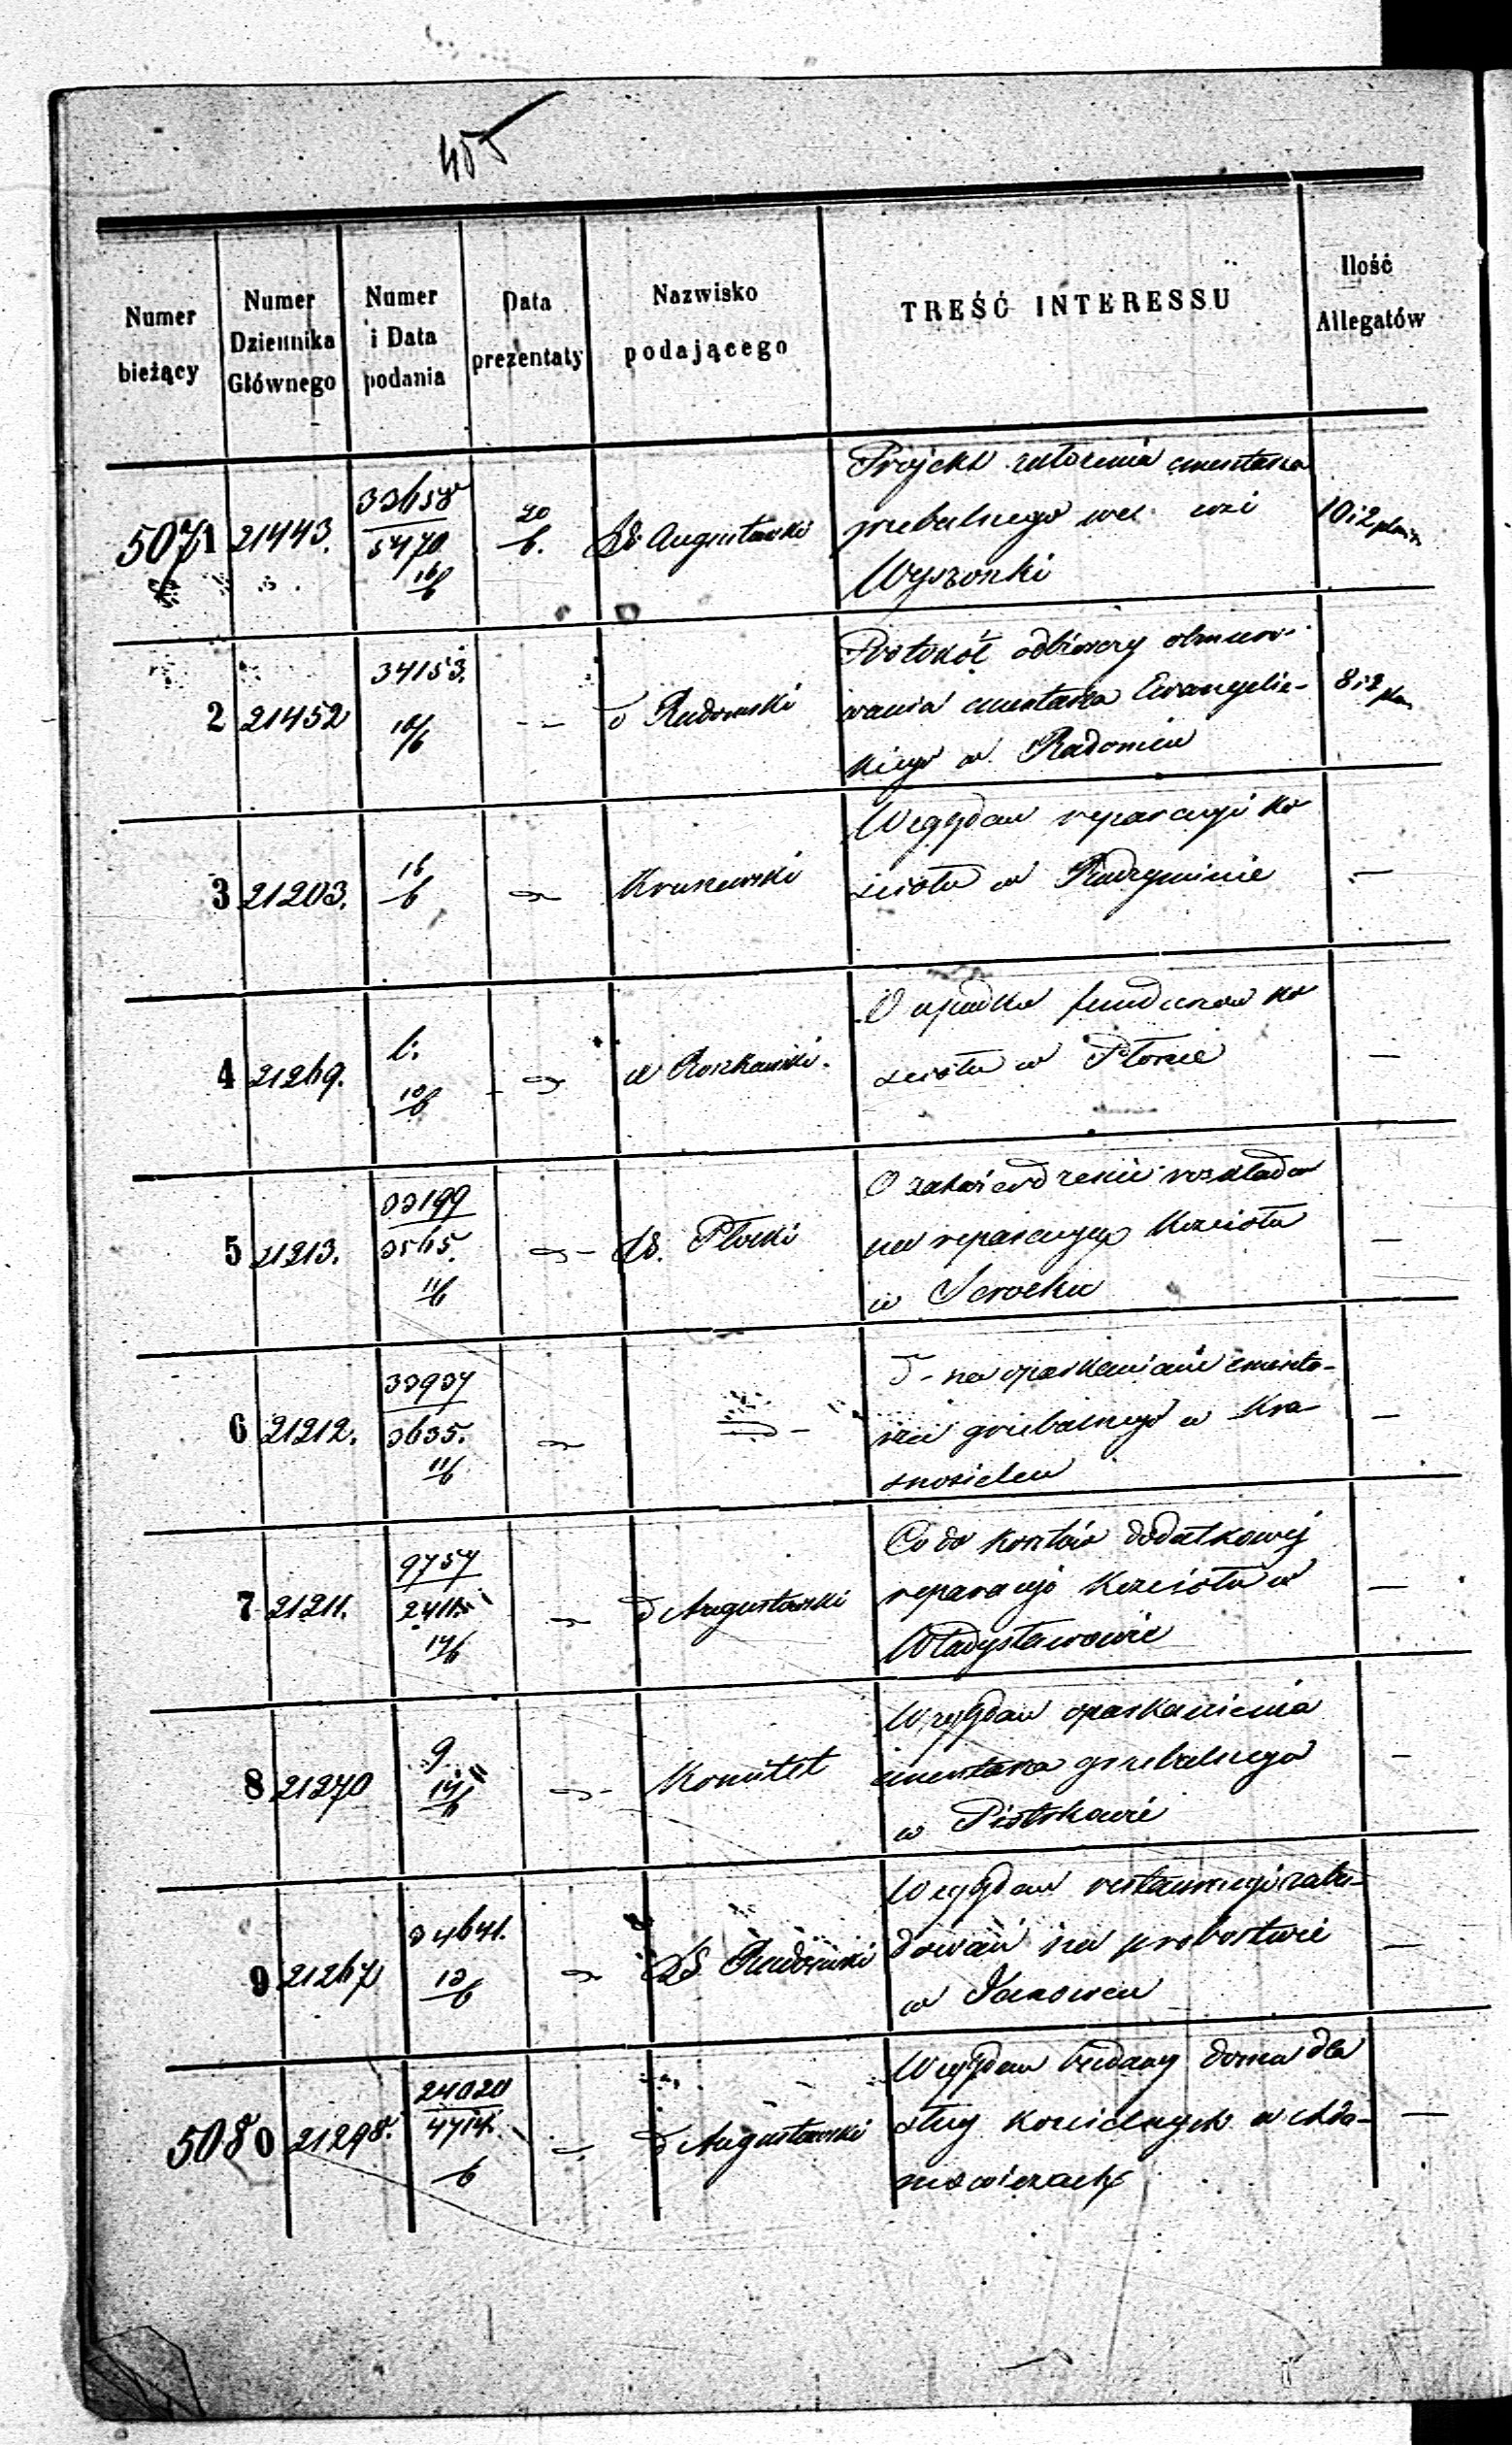 455
Numer bieżący
Numer Dziennika Głównego
Numer i Data podania
Data prezentaty
Nazwisko podającego
TREŚĆ INTERESSU
Ilość Allegatów
5071 21443. 33658 5470 16/6 20/6. Augustowski Projekt założenia cmentarza 10 i 2
grzebalnego we wsi
Wyszonki
2 21452 34153. 18/6 - - Radomski Protokół odbiorczy obmuro-
wania cmentarza Ewangelic- 8 i 2
kiego w Radomiu
3 21203. 16/6 Kruszewski Względem reparacyi ko
ścioła w Radzyminie —
4 21269. 10/6 O upadku funduszu ko
ścioła w Płonie —
5 21213. 33199 3565. 11/6 Płocki O zatwierdzenie rozkładu
na reparacyę Kościoła —
w Serocku
6 21212. 33937 3635. 11/6 na oparkanianie cmenta-
rza grzebalnego w Kra- —
snosielcu
7 21211. 9757 14/6 d Augustowski Co do kosztów dodatkowej
reparacyi Kościoła w —
Władysławowie
8 21270 9 14/6 Komitet Względem oparkanienia
cmentarza grzebalnego —
w Piotrkowie
9 21267 34641. 13/6 Radomski Względem restauracyi zabu-
dowań na probostwie —
w Janowcu
5080 21298. 24020 4714. /6 d Augustowski Względem budowy domu dla
sług kościelnych w Ada- —
mowiczach